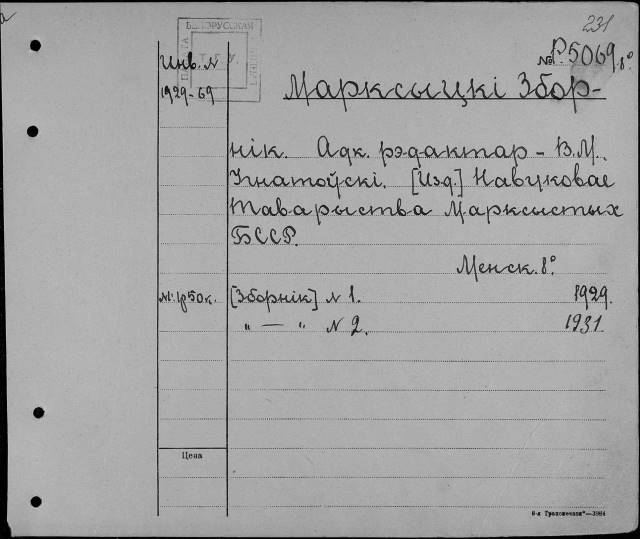 231
БЕЛОРУССКАЯ
Инв. N
1929-69
№ Р.5069 8°
Марксыцкі Збор-
нік. Адк. рэдактар - В.М.
Ігнатоўскі. [Изд.] Навуковае
таварыства Марксыстых
БССР.
Менск. 8°.
50к. [Зборнік] N 1. 1929.
" — " N 2. 1931.
Цена